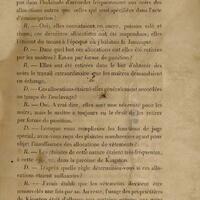 pot dans l'habitude d'accorder fréquemment aux noirs des
allocations autres que celles qui sont spécifiées dans l'acte
d'émancipation ?
R. — Oui, elles consistaient en sucre, poisson salé et
rhum; ces dernières allocations ont été suspendues; elles
étaient en usage à l'époque où j'habitais la Jamaïque.
D. — Dans quel but ces allocations ont-elles été retirées
par les maîtres ? Est-ce par forme de punition ?
R. — Elles ont été retirées dans le but d'obtenir des
noirs le travail extraordinaire que les maîtres demandaient
en échange.
D. — Ces allocations étaient-elles généralement accordées
en temps de l'esclavage ?
R. — Oui. A vrai dire, elles sont une nécessité pour les
noirs, mais le maître a, de droit, le droit de les retirer
par forme de punition.
D. — Lorsque vous remplissiez les fonctions de juge
spécial, avez-vous reçu des plaintes nombreuses ayant pour
objet l'insuffisance des allocations de vêtements ?
R. — Les plaintes de cette nature étaient très-fréquentes,
à cette dans la paroisse de Kingston.
D. — D'après quelle règle déterminiez-vous si ces
allocations étaient suffisantes ?
R. — J'avais établi que les vêtements devaient être
renouvelés une fois par an. Au reste, l'usage des propriétaires
de Kingston était d'allouer